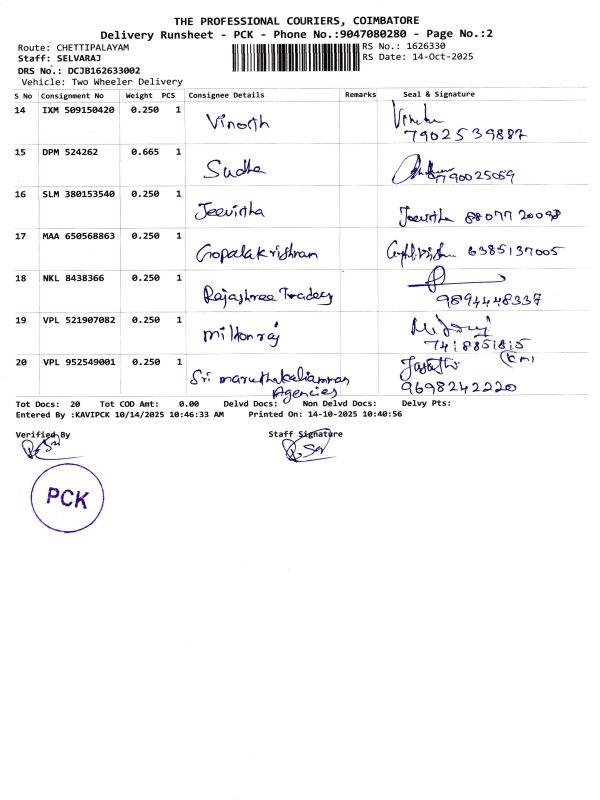 THE PROFESSIONAL COURIERS, COIMBATORE
Delivery Runsheet - PCK - Phone No.:9047080280 - Page No.:2
Route: CHETTIPALAYAM RS No.: 1626330
Staff: SELVARAJ RS Date: 14-Oct-2025
DRS No.: DCJB162633002
Vehicle: Two Wheeler Delivery
S No Consignment No Weight PCS Consignee Details Remarks Seal & Signature
14 IXM 509150420 0.250 1 Vinoth
7902539887
15 DPM 524262 0.665 1 Sudha
7790025069
16 SLM 380153540 0.250 1 Jeevitha Jeevitha 8807720098
17 MAA 650568863 0.250 1 Gopalakrishnan 6385137005
18 NKL 8438366 0.250 1 Rajashree Traders
9894448337
19 VPL 521907082 0.250 1 miltonraj
7418851815
20 VPL 952549001 0.250 1 Sri maruthakaliamman
Agencies 9698242220
Tot Docs: 20 Tot COD Amt: 0.00 Delvd Docs: Non Delvd Docs: Delvy Pts:
Entered By :KAVIPCK 10/14/2025 10:46:33 AM Printed On: 14-10-2025 10:40:56
Verified By Staff Signature
PCK